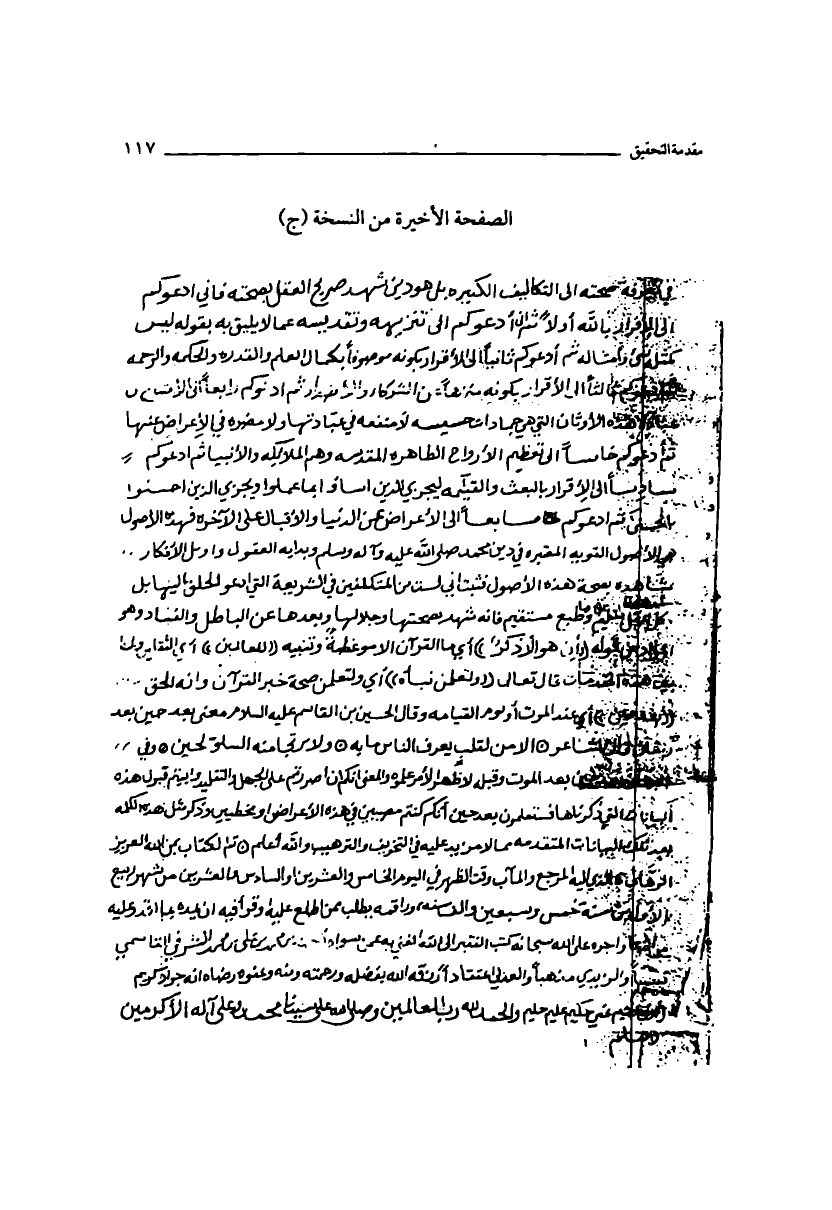 مقدمة التحقيق ١١٧
الصفحة الأخيرة من النسخة (ج)
صحته الى التكاليف الكبيره بل هو دين شهد صريح العقل بصحته فاني ادعوكم
بالله أولاً ثم ادعوكم الى تنزيهه وتقديسه عما لا يليق به بقوله ليس
ثم أدعوكم ثانياً الى الأقرار بكونه موصوفاً بكمال العلم والقدرة والحكمه والرحمه
الى الأقرار بكونه منزهاً عن الشركاء رابعاً
هذه الأوثان التي هي جمادات خسيسه لا منفعه في عبادتها ولا مضره في الإعراض عنها
ثم أدعوكم خامساً الى تعظيم الأرواح الطاهره المقدسه وهم الملائكه والأنبيا ثم ادعوكم
سادساً الى الإقرار بالبعث والقيمه ليجزي الذين اساؤا بما عملوا ويجزي الذين احسنوا
بالحسنى ثم ادعوكم سابعاً الى الأعراض عن الدنيا والأقبال على الآخره فهذه الأصول
هي الأصول القويه المعتبره في دين محمد صلى الله عليه وآله وسلم وبدايه العقول واوائل الأفكار
شاهده بصحة هذه الأصول فثبت أني لست من المتكلفين في الشريعة التي ادعو الخلق اليها بل
وطبع مستقيم فانه شهد بصحتها وجلالها وبعدها عن الباطل والفساد وهو
قوله ((إن هو إلا ذكر)) أي ما القرآن الا موعظة وتنبيه ((للعالمين)) أي الثقلين ولما
بين هذه المقدمات قال تعالى ((ولتعلمن نبأه)) أي ولتعلمن صحة خبر القرآن وانه الحق
أي عند الموت أو يوم القيامه وقال الحسين بن القاسم عليه السلام معنى بعد حين بعد
الشاعر ٥ الا من لقلب يعرف الناس ما به ٥ ولا يرتجا منه السلو لحين ٥ وفي
بعد الموت وقبله لا ظهار الأمر علوه والمعنى انكم ان أصررتم على الجهل والتقليد وابيتم قبول هذه
البيانات التي ذكرناها فستعلمون بعد حين أنكم كنتم مصيبين في هذه الأعراض او مخطيين وذكر مثل هذه الكلمه
بعد تلك البيانات المتقدمه مما لا مزيد عليه في التخويف والترهيب والله أعلم ٥ تم الكتاب بمن الله العزيز
اليه المرجع والمآب وقت الظهر في اليوم الخامس والعشرين او السادس والعشرين من شهر ربيع
سنة خمس وسبعين والف سنه، وراقمه يطلب ممن اطلع عليه وقرأ فيه ان يمده بما امده عليه
واجره على الله سبحانه كتب الفقير الى الله الغني به عمن سواه القاسمي
نسباً والزيدي مذهباً والعدلي اعتقاداً رزقه الله بفضله ورحمته ومنه وعفوه رضاه انه جواد كريم
غني حكيم عليم حليم والحمد لله رب العالمين وصلى الله على سيدنا محمد وعلى آله الأكرمين